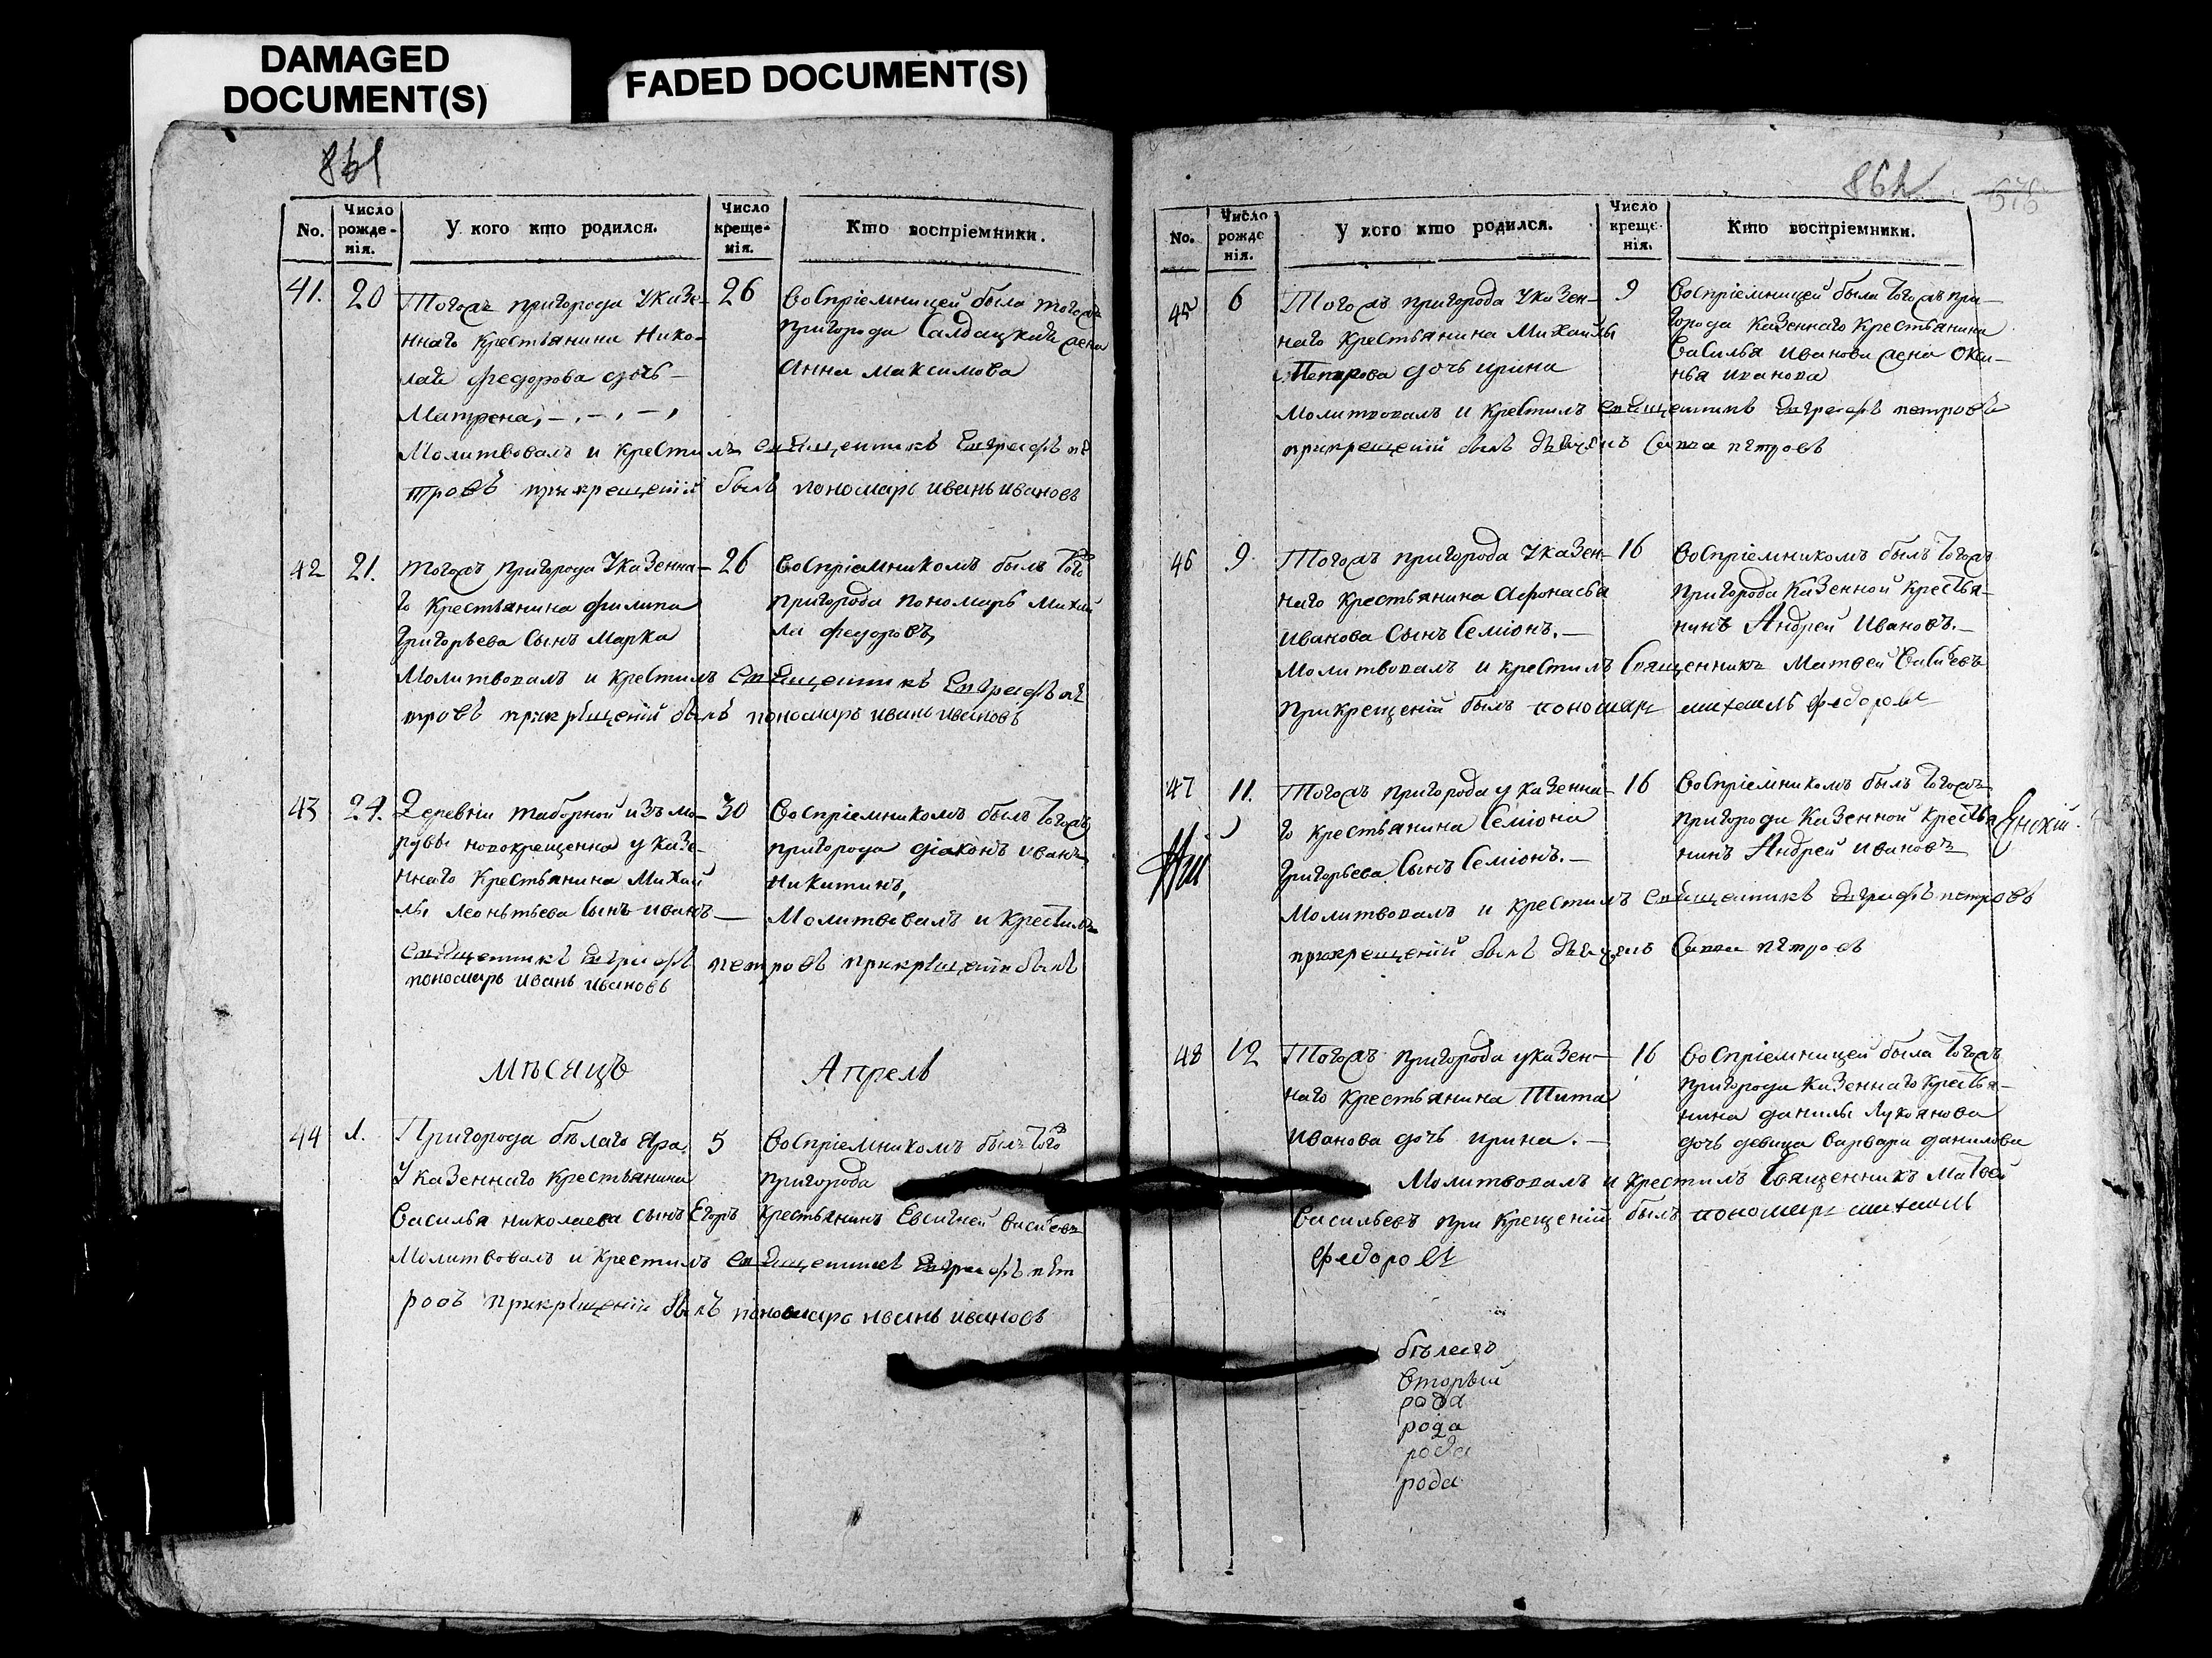 DAMAGED
DOCUMENT(S)
FADED DOCUMENT(S)
861
No.
Число рожде-нія.
У кого кто родился.
Число креще-нія.
Кто воспріемники.
41. 20 Тогожъ пригорода Указе- 26
ннаго крестьянина Нико-
лая Федорова дочь
Матрена, — , — , — ,
Воспріемницей была тогожъ
пригорода Салдацкая жена
Анна Максимова
Молитвовалъ и крестилъ священникъ Евграфъ пе
тровъ прикрещеніи былъ пономарь иванъ ивановъ
42 21. Тогожъ пригорода Указенна- 26
го крестьянина филипа
Григорьева сынъ Марка
Воспріемникомъ былъ того
пригорода пономарь Михаи
ла федоровъ,
Молитвовалъ и крестилъ священникъ Евграфъ пе
тровъ прикрещеніи былъ пономарь иванъ ивановъ
43 24. Деревни таборной изъ мо- 30
рдвы новокрещенна у казе-
ннаго крестьянина Михаи
лы леоньтьева сынъ иванъ —
Воспріемникомъ былъ тогожъ
пригорода діаконъ иванъ
никитинъ,
Молитвовалъ и крестилъ
священникъ Евграфъ петровъ прикрещеніи былъ
пономарь иванъ ивановъ
мѣсяцъ Апрель
44 1. Пригорода бѣлаго Яра 5
Указеннаго крестьянина
Василья николаева сынъ Егоръ
Воспріемникомъ былъ того
пригорода
крестьянинъ Евсигней
Молитвовалъ и крестилъ священникъ Евграфъ пет
ровъ прикрещеніи былъ пономарь иванъ ивановъ
862
576
No.
Число рожде нія.
У кого кто родился.
Число креще-нія.
Кто воспріемники.
45 6 Тогожъ пригорода Указен- 9
наго крестьянина Михайлы
Петрова дочь ирина
Воспріемницей была тогожъ при-
города казеннаго крестьянина
Василья иванова жена Окси-
нья иванова
Молитвовалъ и крестилъ священникъ Евграфъ петровъ
прикрещеніи былъ дьячекъ Савва петровъ
46 9. Тогожъ пригорода Указен- 16
наго крестьянина Афонасья
Иванова сынъ Семіонъ. —
Воспріемникомъ былъ тогожъ
пригорода казенной крестья-
нинъ Андрей Ивановъ. —
Молитвовалъ и крестилъ священникъ Матвей
Прикрещеніи былъ пономарь михаилъ федоровъ
47 11. Тогожъ пригорода у казенна- 16
го крестьянина Семіона
Григорьева сынъ Семіонъ. —
Воспріемникомъ былъ тогожъ
пригорода казенной крестья
нинъ Андрей ивановъ
Молитвовалъ и крестилъ священникъ Евграфъ петровъ
прикрещеніи былъ дьячекъ Савва петровъ
48 12 Тогожъ пригорода указен- 16
наго крестьянина Тита
Иванова дочь ирина. —
Воспріемницей была тогожъ
пригорода казеннаго крестья-
нина данилы Лукоянова
дочь девица варвара данилова
Молитвовалъ и крестилъ священникъ Матвей
Васильевъ при крещеніи былъ пономарь михаилъ
федоровъ
бѣлаго
вторый
рода
рода
рода
рода